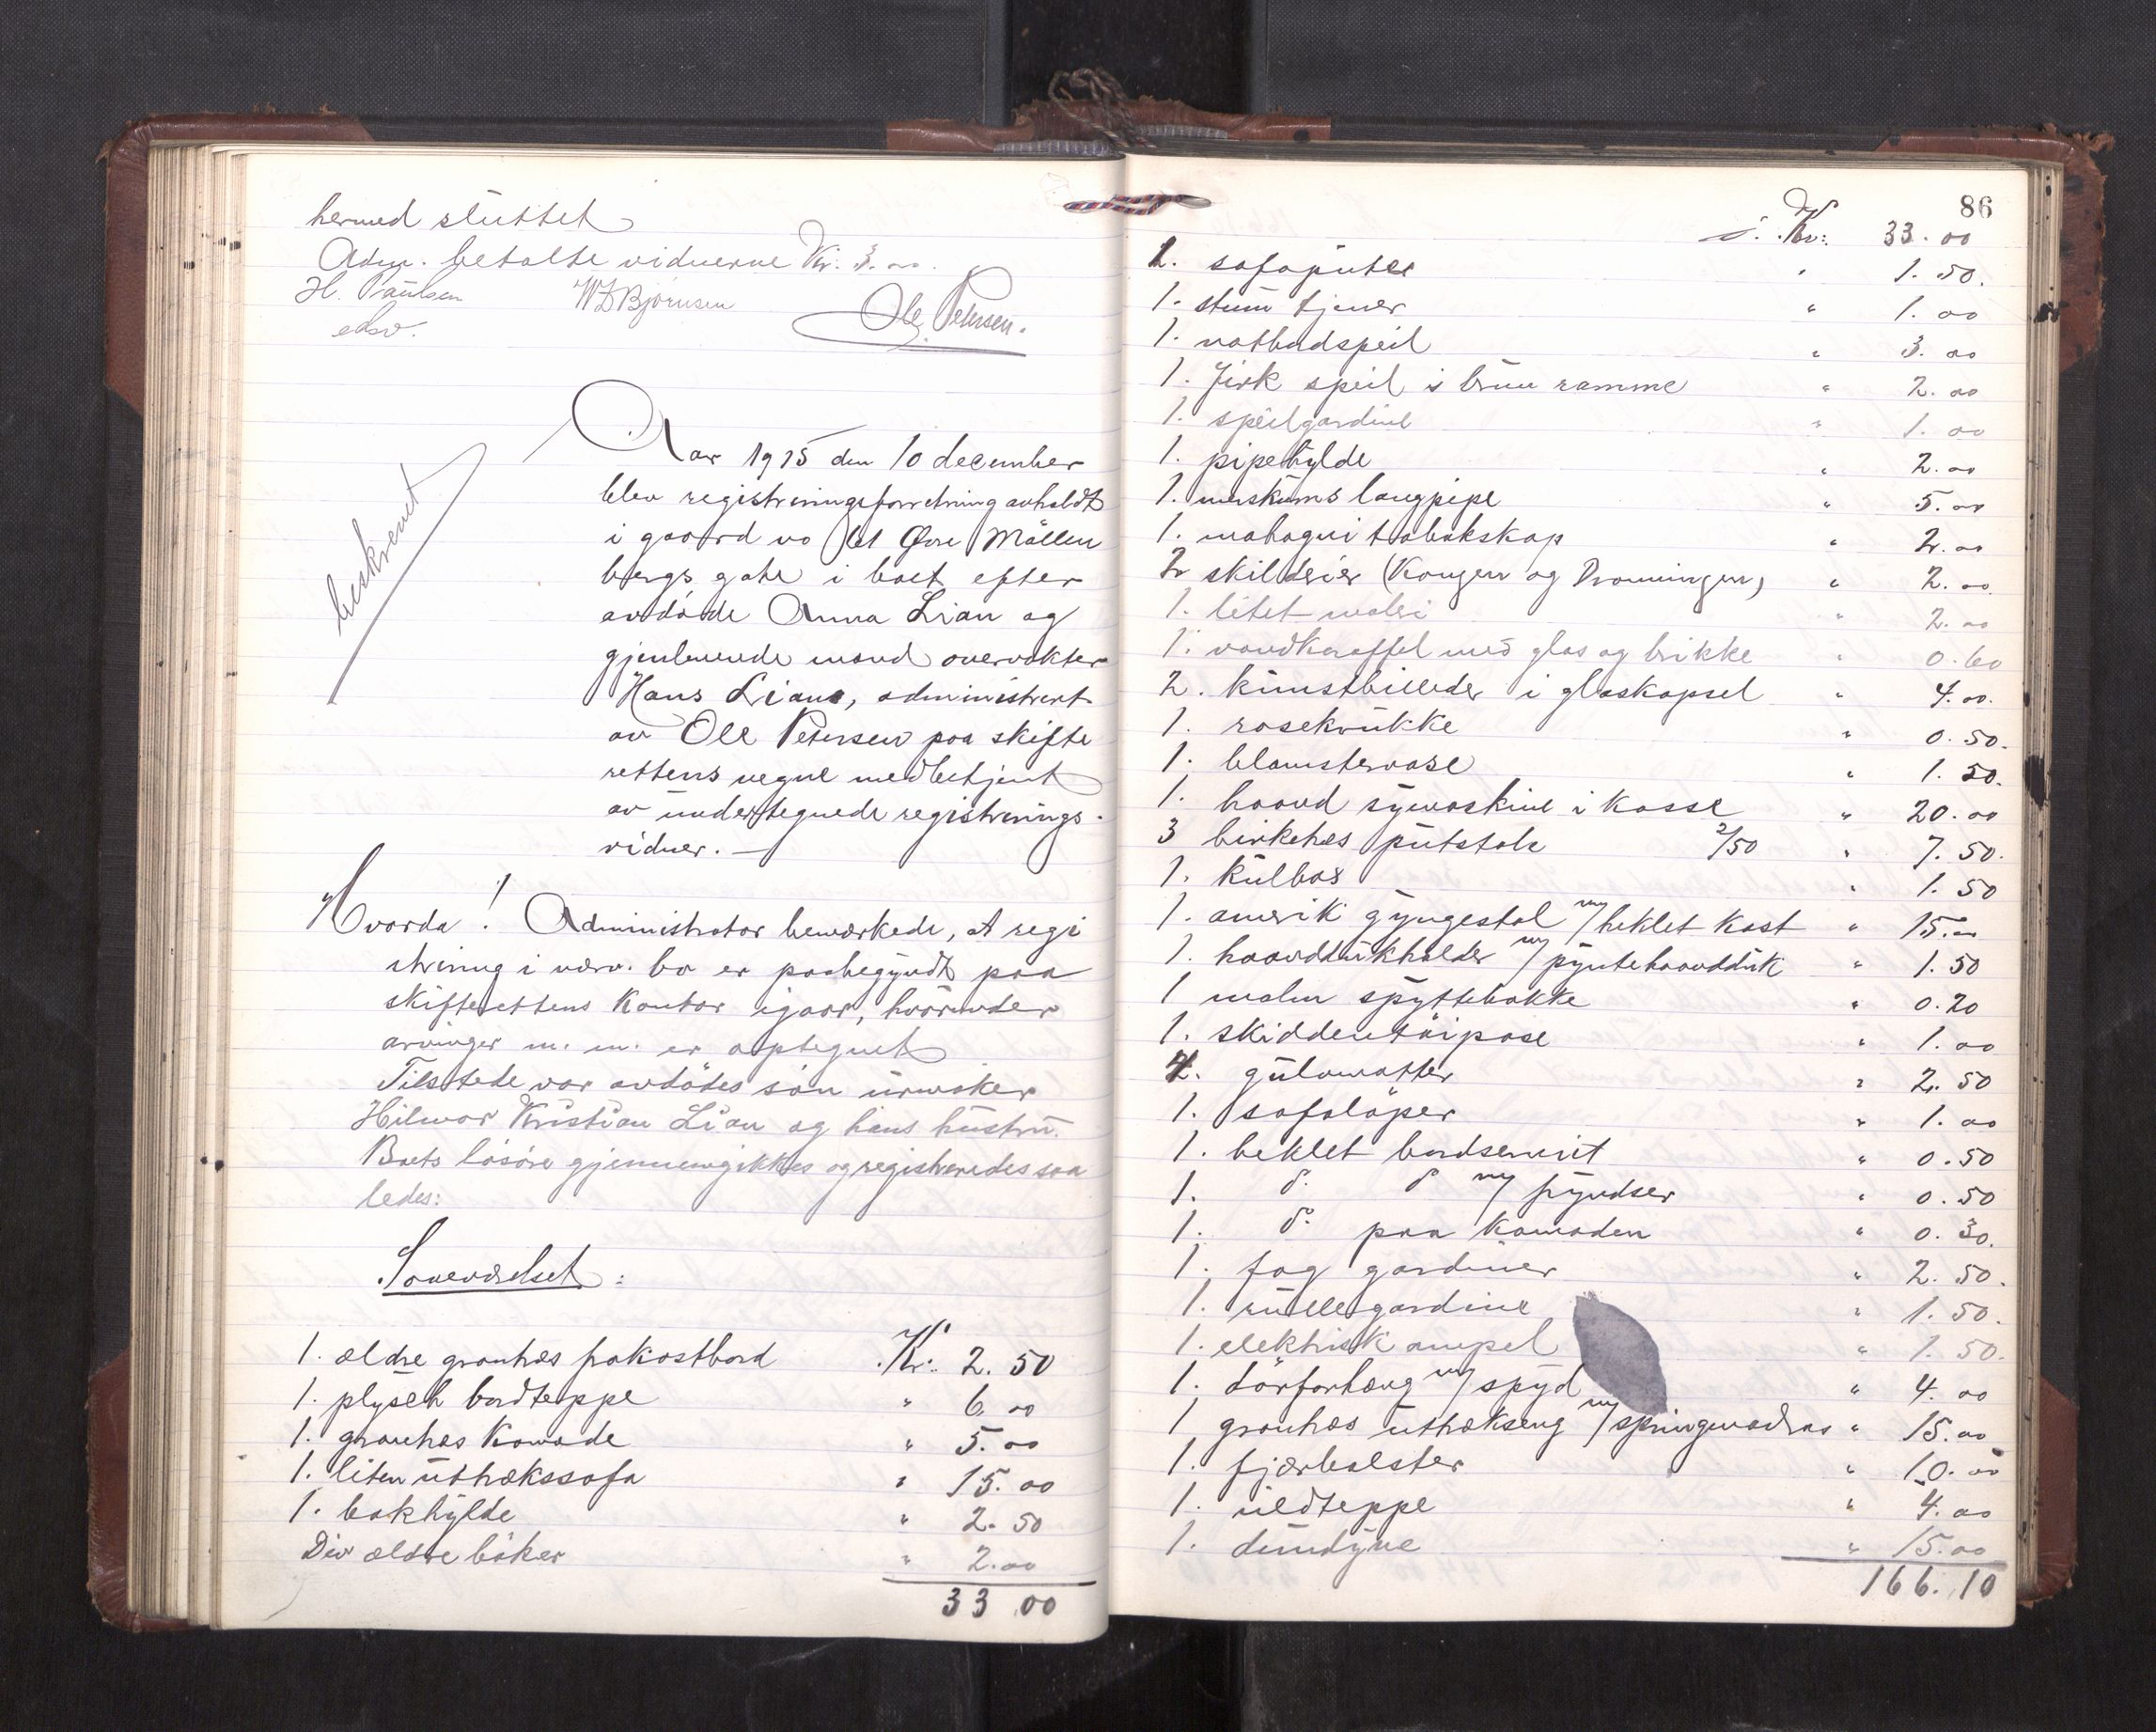 hermed sluttet
Adm. betalte vidnerne Kr. 3.00.
H. Paulsen W Bjørnsen Ole Petersen.
edsv.
beskrevet
Aar 1915 den 10 december
blev registreringsforretning avholdt
i gaard no 61 Øvre Møllen
bergs gate i boet efter
avdøde Anna Lian og
gjenlevende mand overvakter
Hans Lian, administrert
av Ole Petersen paa skifte
rettens vegne medbetjent
av undertegnede registrerings-
vidner. —
Hvorda! Administrator bemærkede, at regi
strering i nærv. bo er paabegyndt paa
skifterettens kontor igaar, hvorunder
arvinger m. m. er optegnet
Tilstede var avdødes søn urmaker
Hilmar Kristian Lian og hans hustru.
Boets løsøre gjennemgikkes og registreredes saa
ledes:
Soveværelset:
1. ældre grantræs frokostbord Kr: 2.50
1. plysch bordteppe " 6.00
1. grantræs komode " 5.00
1. liten uttrækssofa " 15.00
1. bokhylde " 2.50
Div ældre bøker " 2.00
33.00
86
Kr: 33.00
2. sofaputer " 1.50.
1. stum tjener " 1.00
1. natbordspeil " 3.00
1. firk speil i brun ramme " 2.00
1. speilgardine " 1.00
1. pipehylde " 2.00
1. merskums langpipe " 5.00
1. mahogni tobakskap " 2.00
2 skilderier (Kongen og Dronningen) " 2.00
1. litet maleri " 2.00
1. vandkaraffel med glas og brikke " 0.60
2. kunstbilleder i glaskapsel " 4.00.
1. rosekrukke " 0.50.
1. blomstervase " 1.50.
1. haand symaskine i kasse " 20.00
3 birketræs putstole 2/50 " 7.50.
1. kulbox " 1.50
1. amerik gyngestol m/heklet kast " 15.00
1. haanddukholder m/pyntehaandduk " 1.50
1 malm spyttebakke " 0.20
1. skiddentøipose " 1.00
4. gulvmatter " 2.50
1. sofaløper " 1.00
1. heklet bordserviet " 0.50
1. do do m/fryndser " 0.50
1. do paa komoden " 0.30.
1. fag gardiner " 2.50.
1. rullegardine " 1.50.
1. elektrisk ampel " 1.50.
1. dørforhæng m/spyd " 4.00
1 grantræs uttrækseng m/springmadras " 15.00
1. fjærbolster " 10.00
1. uldteppe " 4.00
1. dundyne " 15.00
166.10